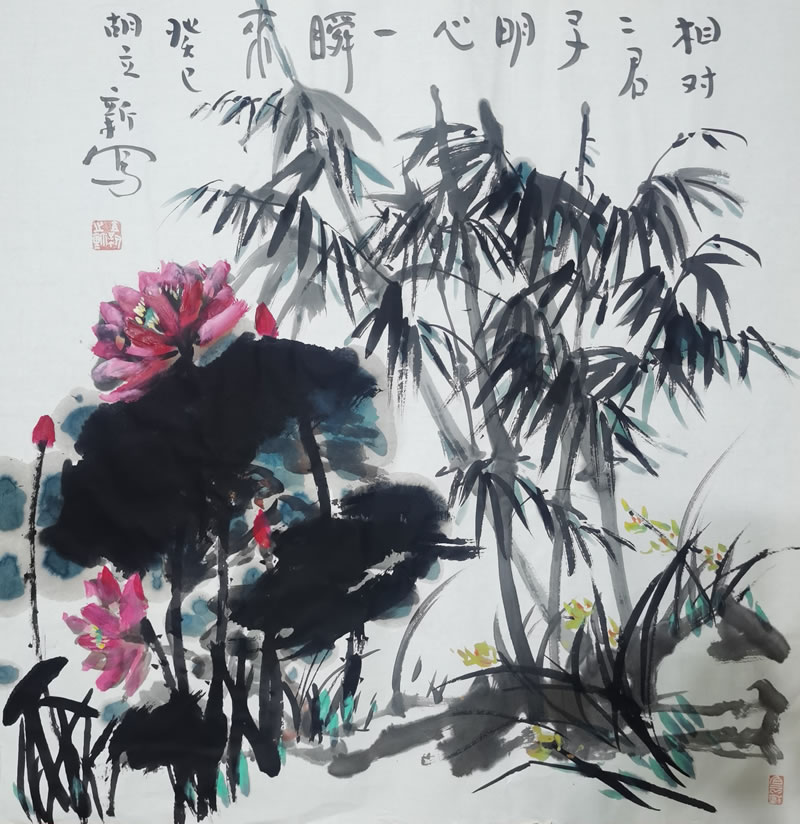 相对
二君
子
明
心
一
瞬
来
癸巳
胡立新写